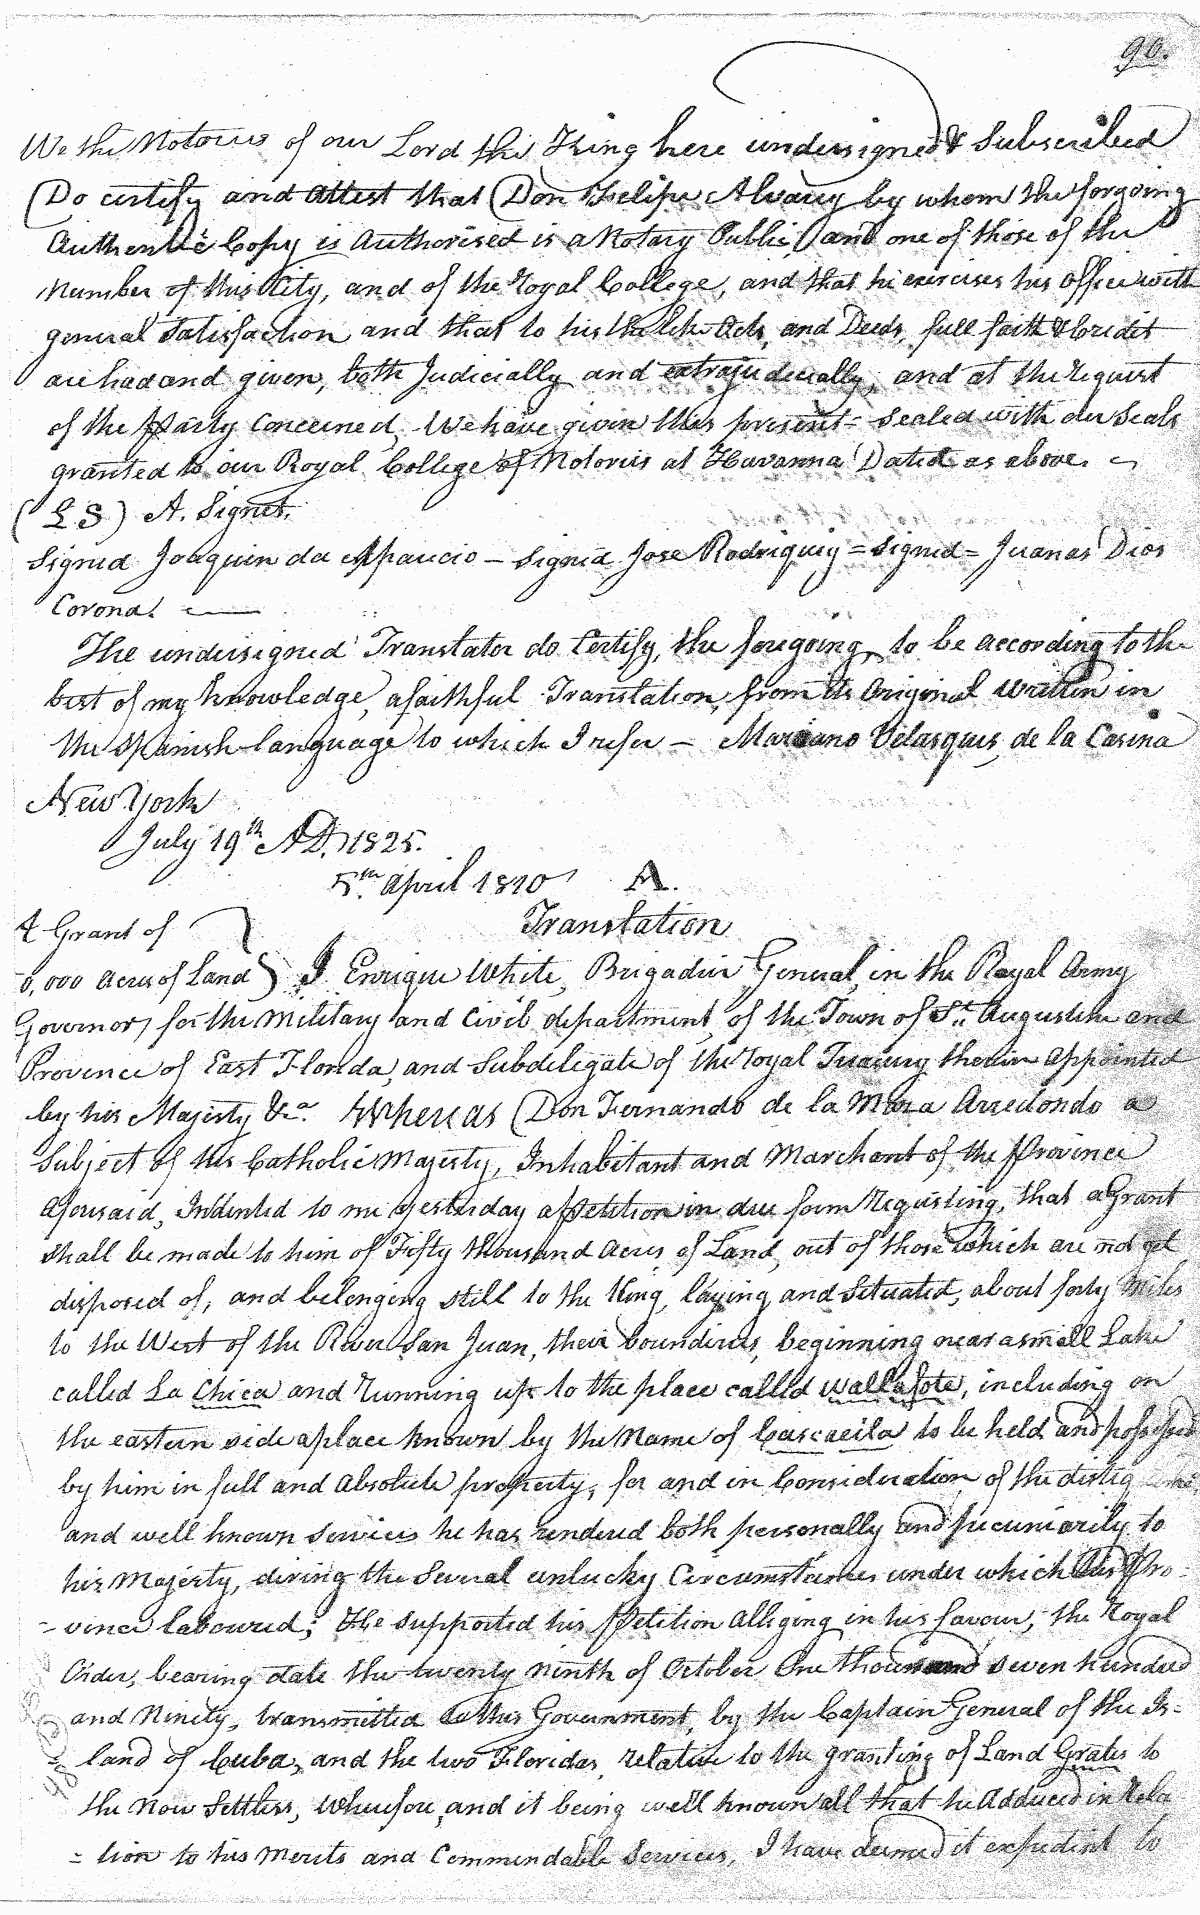 90.
We the Notories of our Lord the King here undersigned & Subscribed
Do certify and attest that Don Felipe Alvarez by whom the forgoing
Authentic Copy is Authorised is a Notary Public, and one of those of the
Number of this City, and of the Royal College, and that he exercises his office with
general Satisfaction and that to his the like Acts, and Deeds, full faith & Credit
are had and given, both Judicially and extrajudicially, and at the request
of the Party Concerned, We have given this present = Sealed with our Seals
granted to our Royal College of Notories at Havanna Dated as above.
(L S) A. Signet.
Signed Joaquin da Aparicio – Signed Jose Rodriguez = Signed = Juan as Dios
Corona!
The undersigned Translator do Certify, the foregoing, to be according to the
best of my knowledge, a faithful Translation, from its Original written in
the Spanish language to which I refer – Mariano Velasques, de la Casina
New York
July 19th AD. 1825.
5th April 1810 A.
A Grant of Translation
0,000 acres of Land } I Enrique White, Brigadier General, in the Royal Army
Governor, for the Military and Civil department, of the Town of St. Augustine and
Province of East Florida, and Subdelegate of the Royal Treasury therein appointed
by his Majesty &a. Whereas Don Fernando de la Maza Arredondo a
Subject of his Catholic Majesty, Inhabitant and Marchant of the Province
aforesaid, Indented to me yesterday a Petition in due form requisting, that a Grant
shall be made to him of Fifty thousand Acres of Land, out of those which are not yet
disposed of, and belonging still to the King, laying and Situated, about forty Miles
to the West of the River San Juan, their boundires, beginning near a small Lake
called La Chica and running up to the place called Wallafote, including on
the eastern side a place known by the Name of Cascaeila to be held and possessed
by him in full and absolute property, for and in Consideration of the distig
and well known Services he has rendered both personally and pecuniarily to
his Majesty, diring the Several unlucky Circumstances under which this Pro=
=vince laboured; He supported his Petition alleging in his favour, the Royal
Order, bearing date the twenty ninth of October One thousand seven hundred
and Ninety, transmitted to this Government, by the Captain General of the Is=
land of Cuba, and the two Floridas, relative to the granting of Land Gratis to
the now Settlers, Wherefore, and it being well known all that he Adduced in Rela
=tion to his Merits and Commendable Services, I have deemed it expedient to